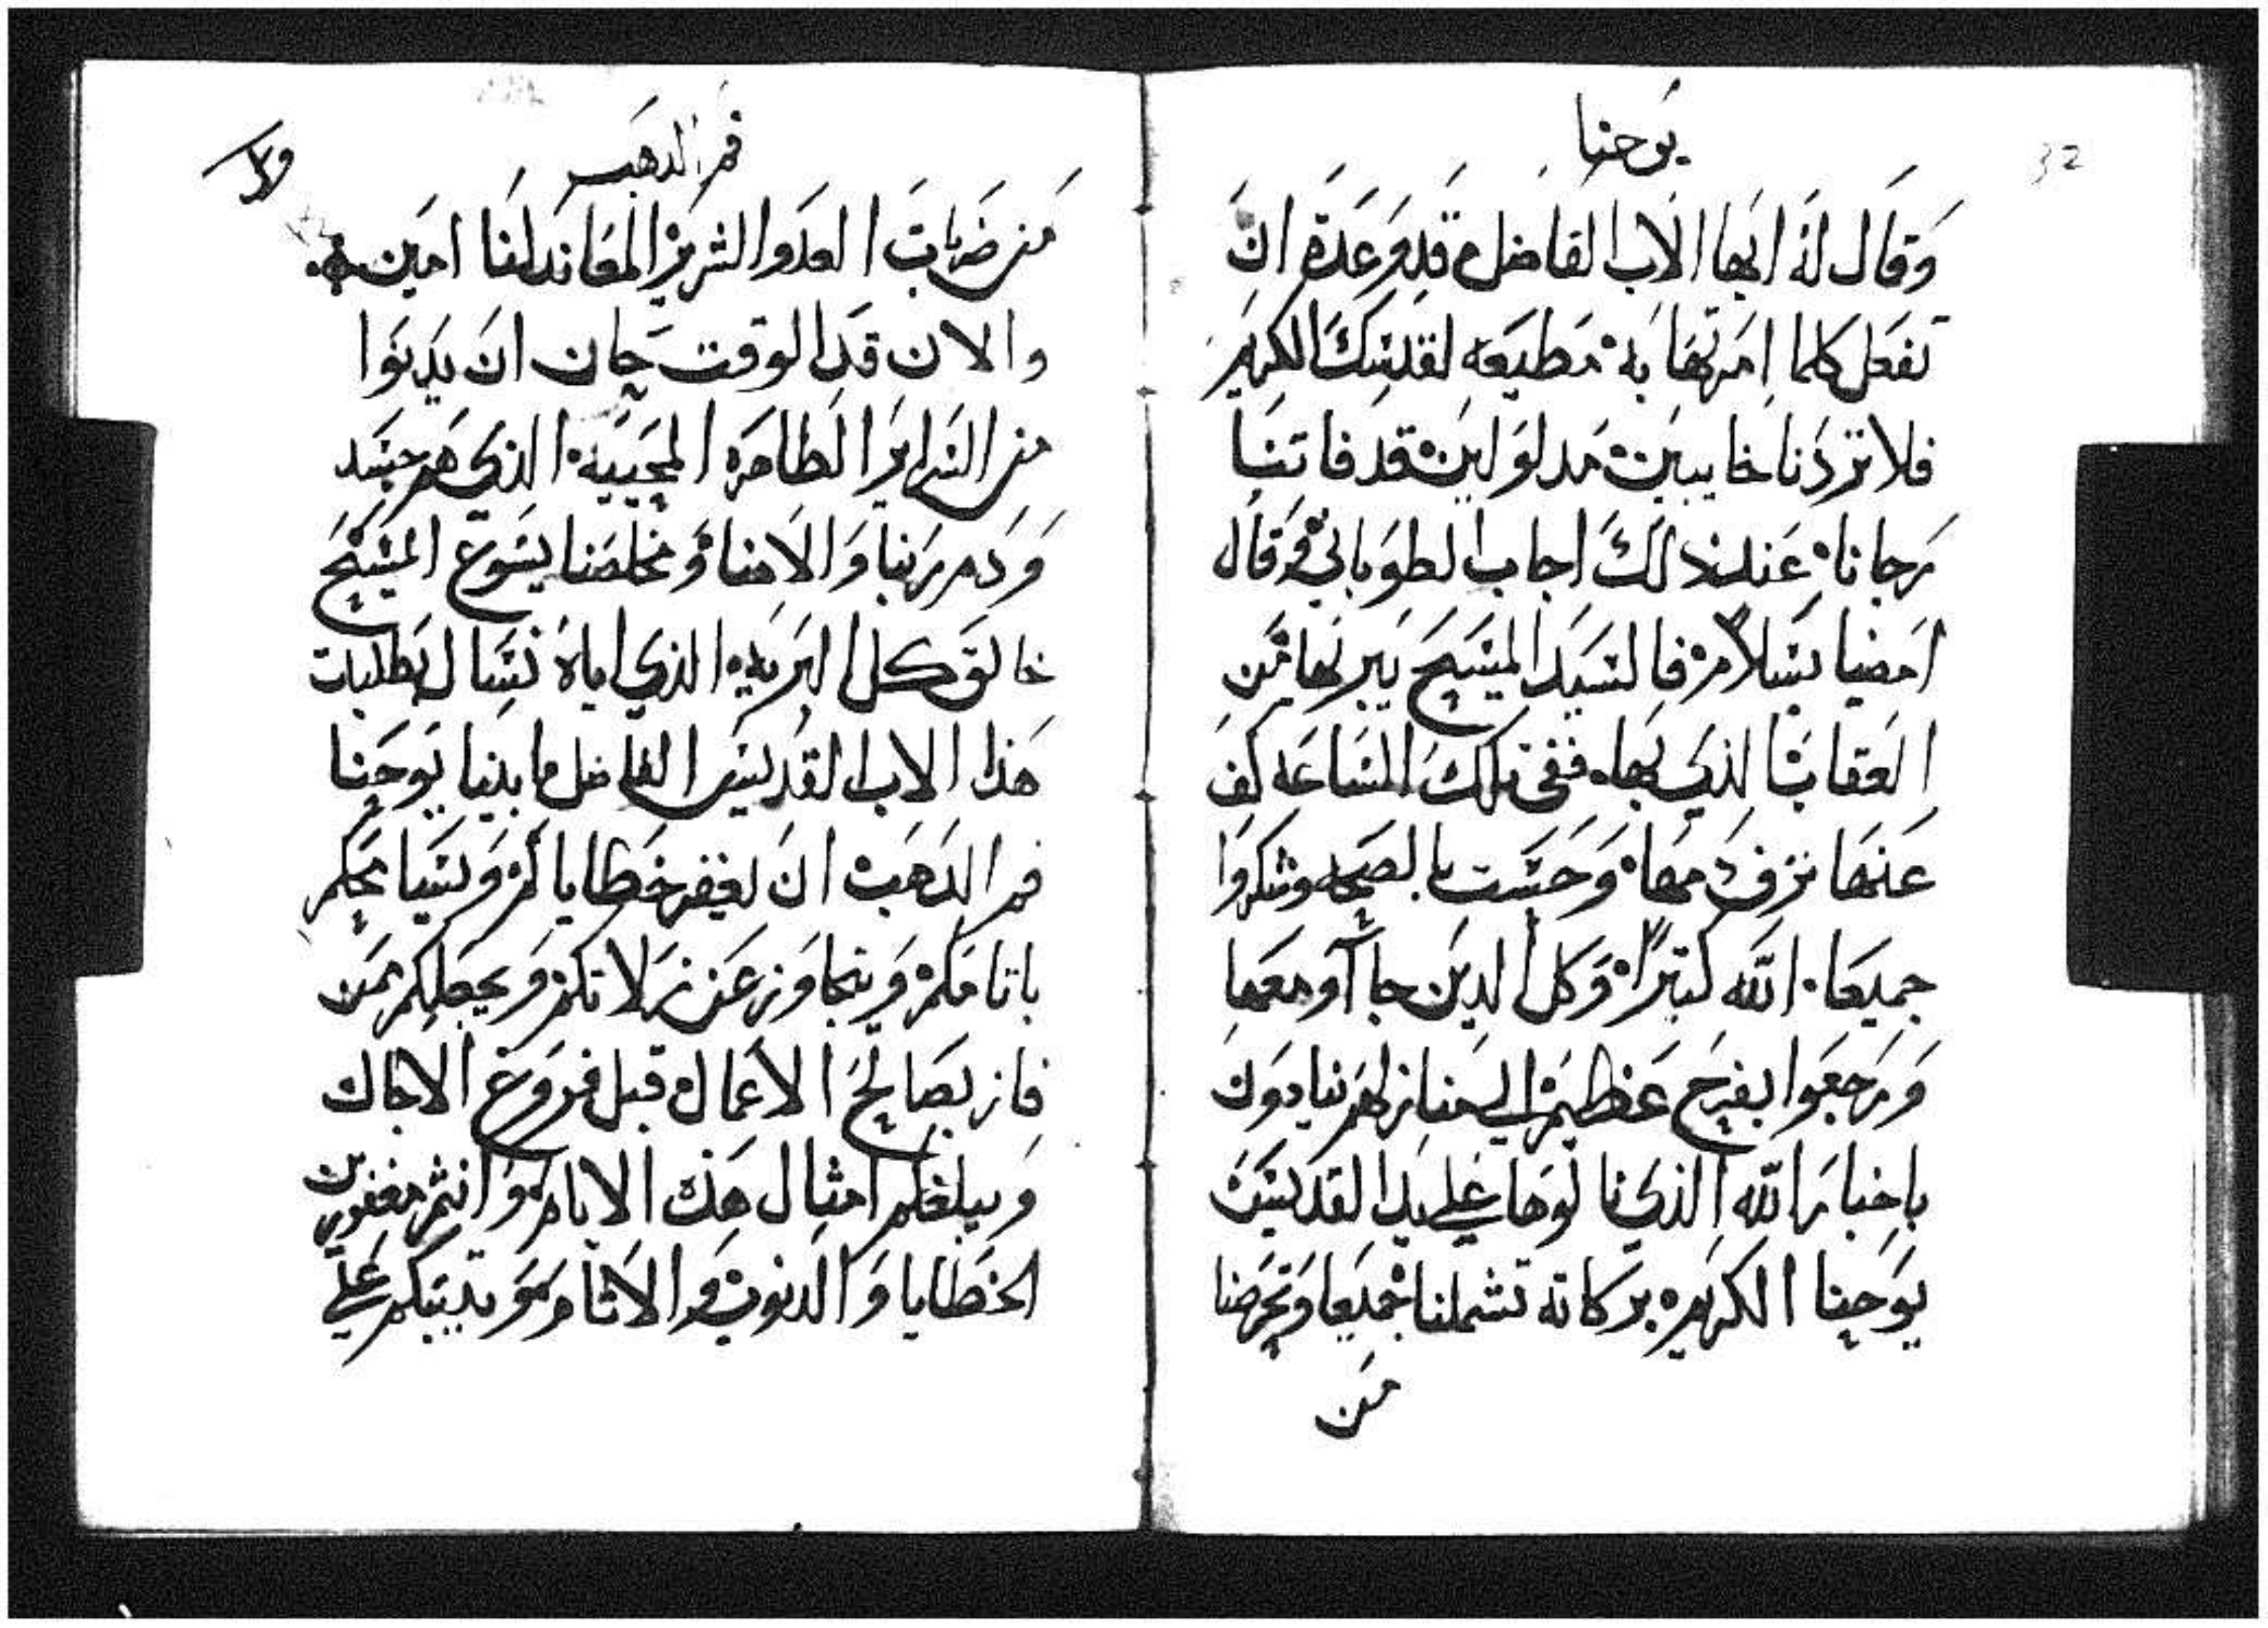 يوحنا
32
وقال له ايها الاب الفاضل قد وعدة ان
تفعل كلما امرتها به مطيعه لقدسك الكريم
فلا تردنا خايبين مدلولين قد فاتنا
رجانا عند ذلك اجاب الطوباني وقال
امضيا بسلام فالسيد المسيح يبريها من
العقاب الذي بها ففي تلك الساعه كف
عنها نزف دمها وحست بالصحه وشكروا
جميعا الله كتيرا وكل الدين جاآو معها
ورجعوا بفرح عظيم الي منازلهم ينادون
باخبار الله الذي نالوها علي يد القديس
يوحنا الكريم بركاته تشملنا جميعا وتحرضنا
من
فم الدهب
من ضربات العدوا الشرير المعاند لنا امين
والان قد الوقت حان ان يدنوا
من السراير الطاهره المحييه الذي هم جسد
ودم ربنا والاهنا ومخلصنا يسوع المسيح
خالق كل البريه الذي اياه نسال بطلبات
هذا الاب القديس الفاضل مابينا يوحنا
فم الدهب ان يغفر خطاياكم ويسامحكم
باتامكم ويتجاوز عن زلاتكم ويجعلكم ممن
فاز بصالح الاعمال قبل فروغ الاجال
ويبلغكم امثال هذه الايام وانتم مغفورين
الخطايا والدنوب والاثام ويتيبكم علي